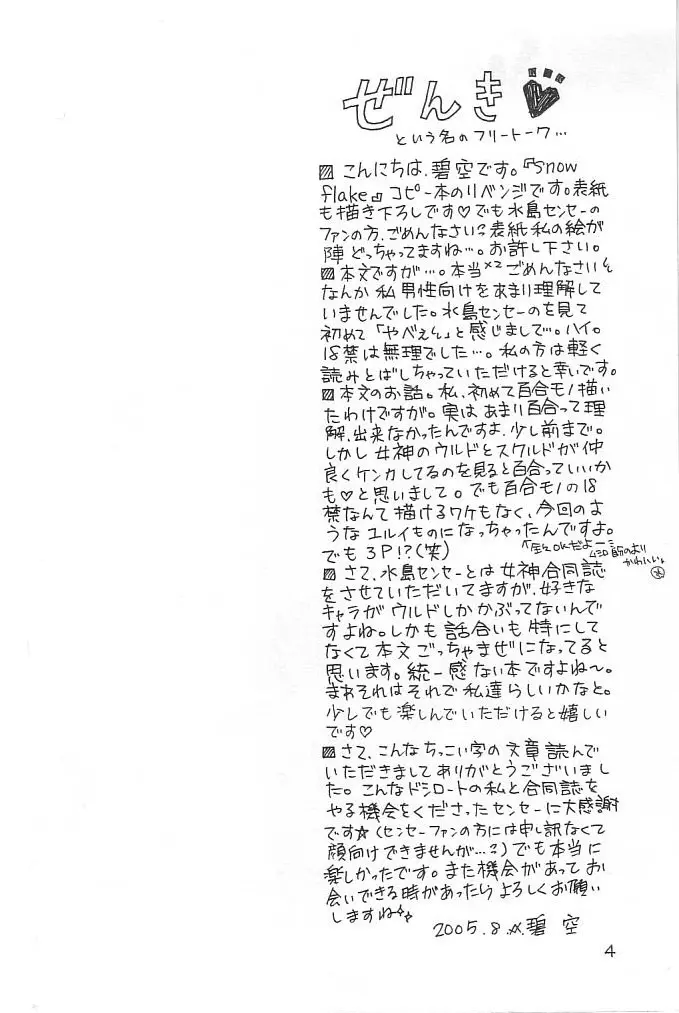 ぜんき♥
という名のフリートーク…
▨こんにちは、碧空です。『Snow
flake』コピー本のリベンジです。表紙
も描き下ろしです♡でも水島センセーの
ファンの方、ごめんなさい?表紙私の絵が
陣どっちゃってますね…。お許し下さい。
▨本文ですが…。本当×2ごめんなさい
なんか私男性向けをあまり理解して
いませんでした。水島センセーのを見て
初めて「やべぇ」と感じまして…。ハイ。
18禁は無理でした…。私の方は軽く
読みとばしちゃっていただけると幸いです。
▨本文のお話。私、初めて百合モノ描い
たわけですが。実はあまり百合って理
解、出来なかったんですよ、少し前まで。
しかし女神のウルドとスクルドが仲
良くケンカしてるのを見ると百合っていいか
も♡と思いまして。でも百合モノの18
禁なんて描けるワケもなく、今回のよ
うなユルイものになっちゃったんですよ。
でも3P!?(笑)
OKだよー
かわいい
▨さて、水島センセーとは女神合同誌
をさせていただいてますが、好きな
キャラがウルドしかかぶってないんで
すよね。しかも話合いも特にして
なくて本文ごっちゃまぜになってると
思います。統一感ない本ですよね〜。
まぁそれはそれで私達らしいかなと。
少しでも楽しんでいただけると嬉しい
です♡
▨さて、こんなちっこい字の文章読んで
いただきましてありがとうございまし
た。こんなドシロートの私と合同誌を
やる機会をくださったセンセーに大感謝
です☆(センセーファンの方には申し訳なくて
顔向けできませんが…?)でも本当に
楽しかったです。また機会があってお
会いできる時があったらよろしくお願い
しますね
2005.8.碧空
4